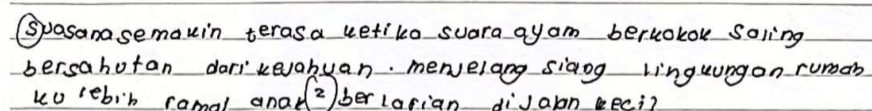 Suasana semakin terasa ketika suara ayam berkokok saling
bersahutan dari kejahuan. menjelang siang lingkungan rumah
ku lebih ramai anak² berlarian dijalan kecil